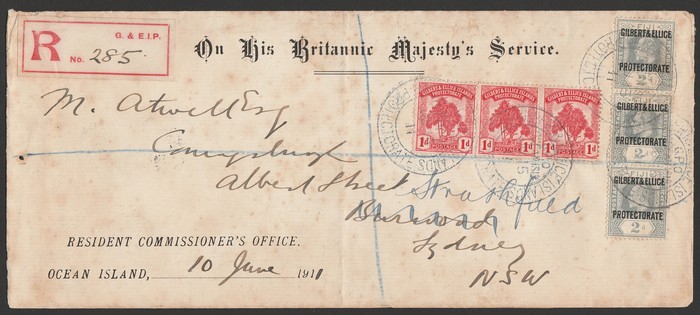 G. & E.I.P.
R
No. 285.
On His Britannic Majesty's Service.
M. Atwell Esq
Albert Street Strathfield
Burwood
Sydney
NSW
RESIDENT COMMISSIONER'S OFFICE.
OCEAN ISLAND, 10 June 1911
GILBERT & ELLICE ISLANDS
PROTECTORATE
1d POSTAGE 1d
GILBERT & ELLICE ISLANDS
PROTECTORATE
1d POSTAGE 1d
GILBERT & ELLICE ISLANDS
PROTECTORATE
1d POSTAGE 1d
FIJI
GILBERT & ELLICE
PROTECTORATE
2d
GILBERT & ELLICE
PROTECTORATE
2d
GILBERT & ELLICE
PROTECTORATE
2d